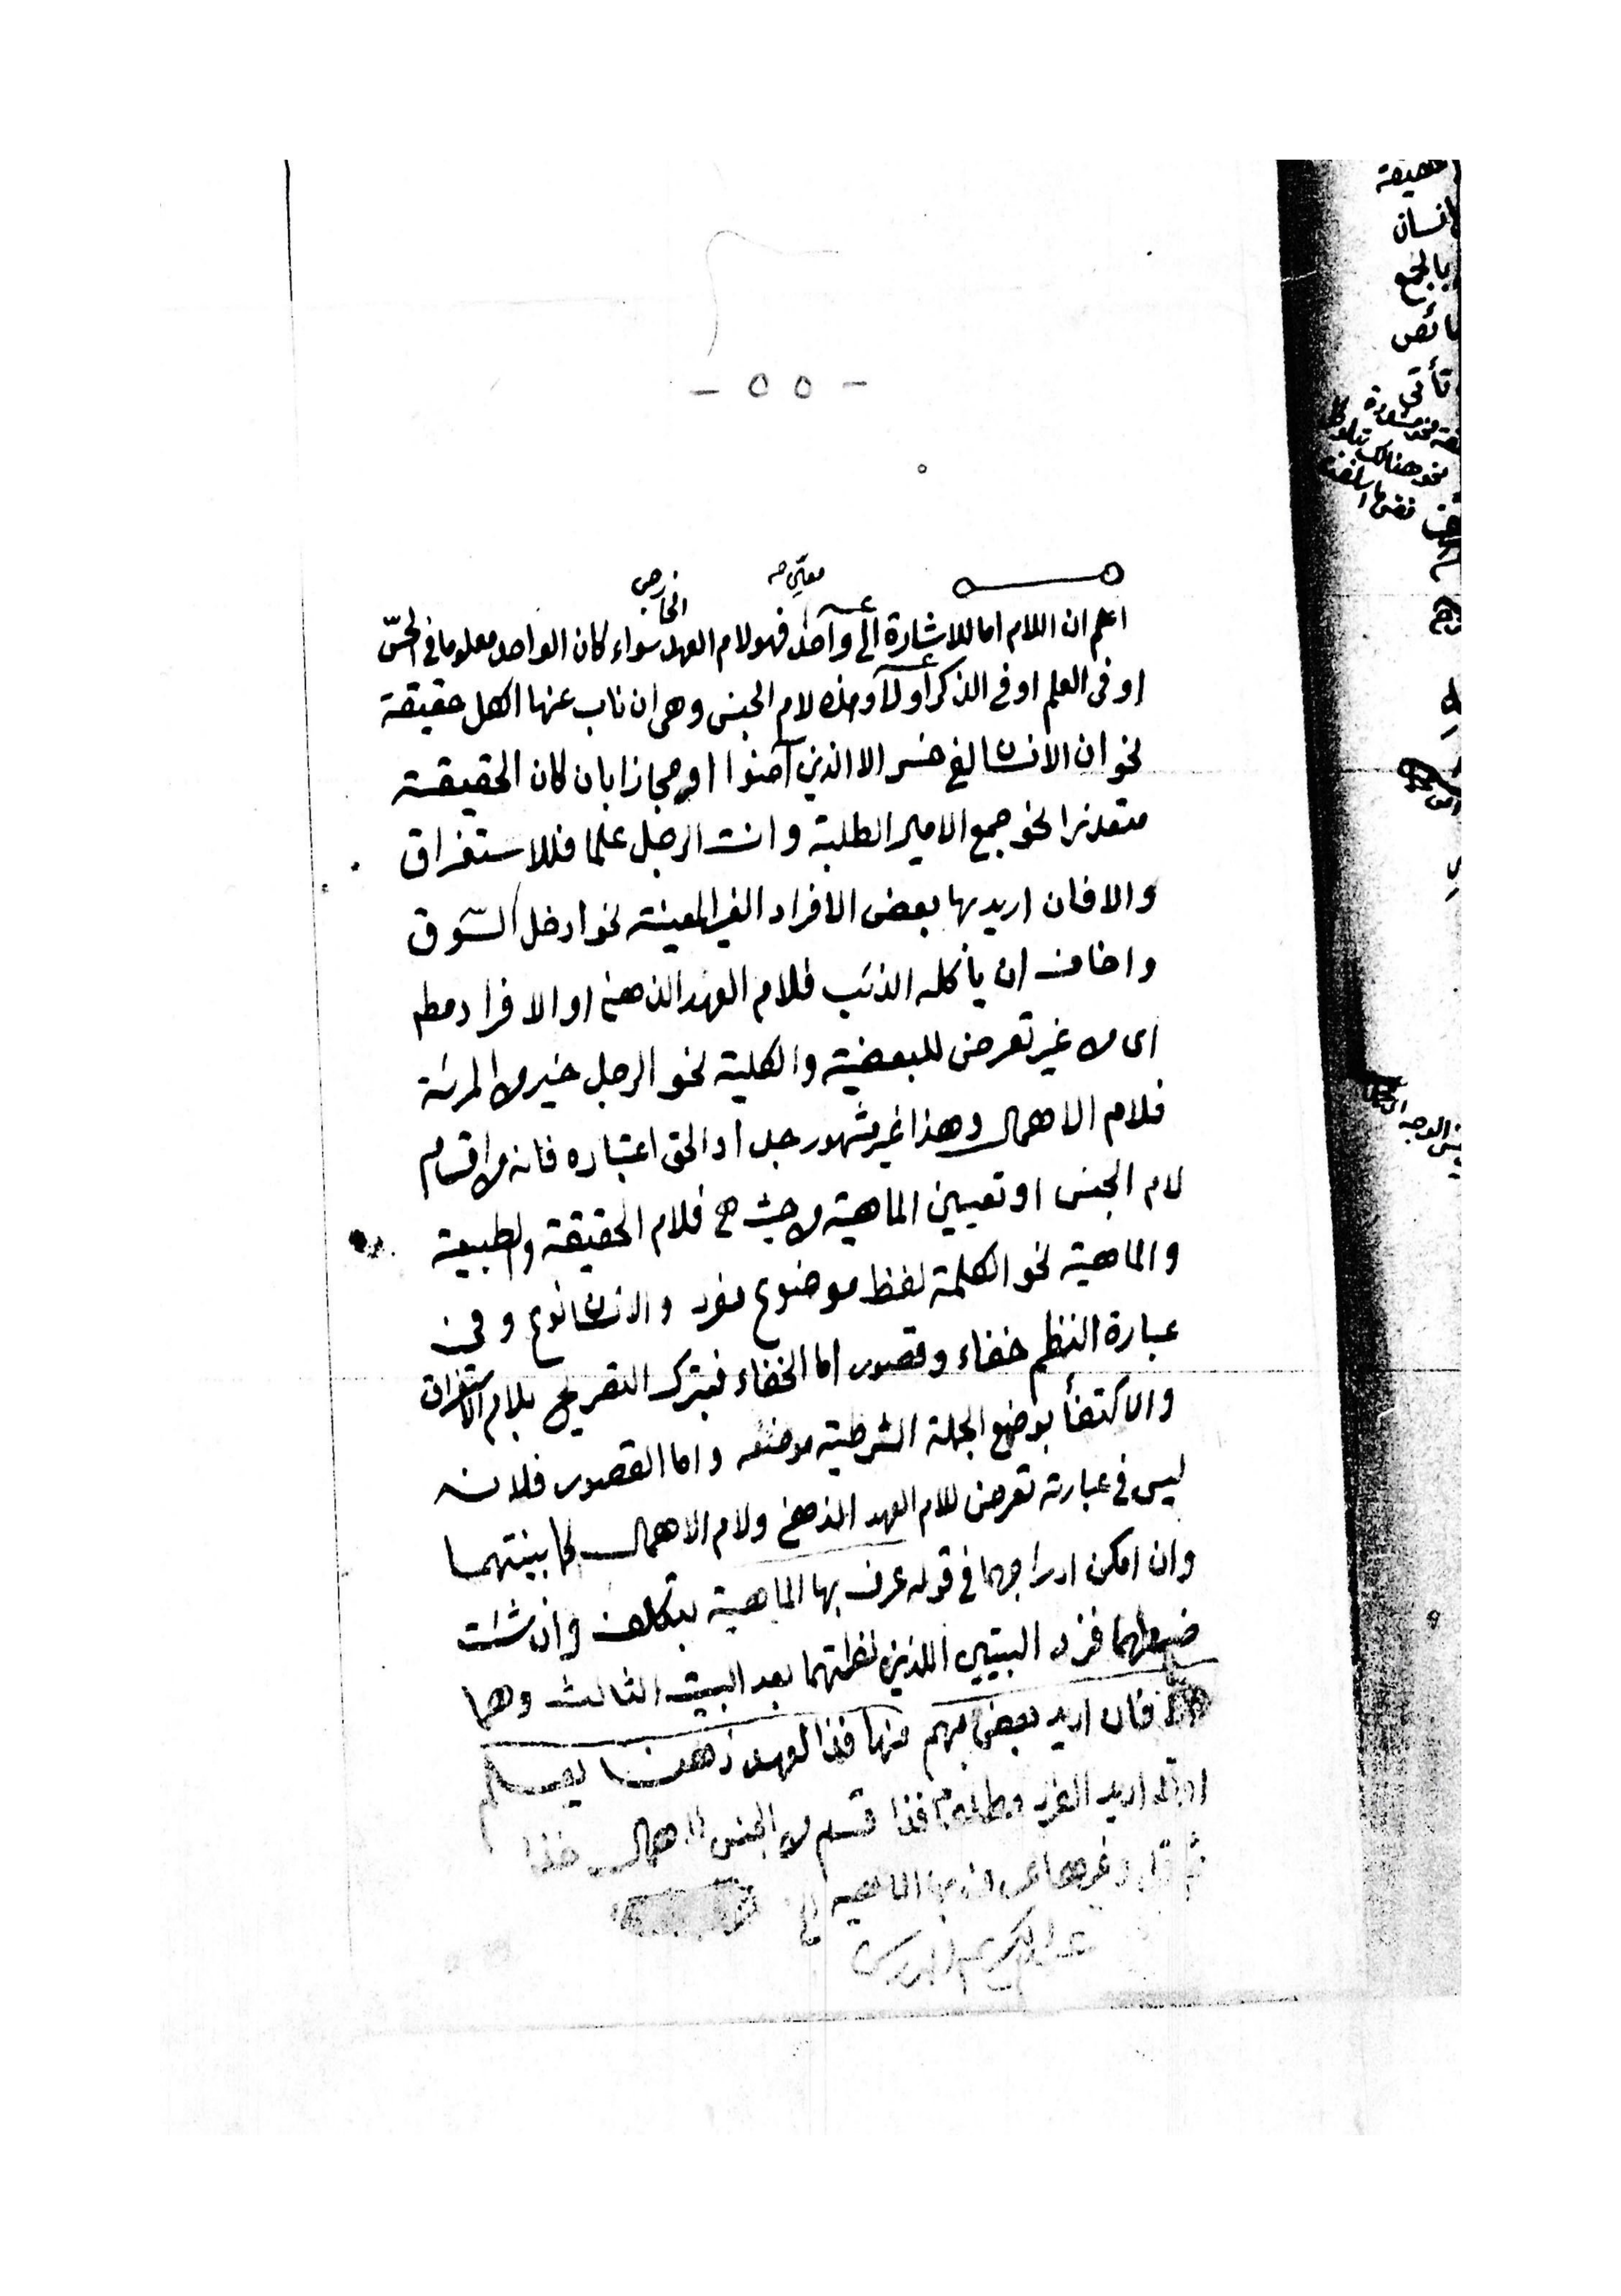 - ٥٥ -
معين صه
الخارجى
اعلم ان اللام اما للاشارة الى واحد فهو لام العهد سواء كان الواحد معلوما فى الحسّ
او فى العلم او فى الذكر أو لا وهذه لام الجنس وهى ان ناب عنها الكل حقيقة
نحو ان الانسان لفى خسر الا الذين آمنوا او مجازا بان كان الحقيقة
متعذرا نحو جمع الامير الطلبة وانت الرجل علما فللاستغراق
والا فان اريد بها بعض الافراد الغير المعينة نحو ادخل السّوق
واخاف ان يأكله الذئب فلام العهد الذهنى او الافراد مط
اى من غير تعرض للبعضية والكلية نحو الرجل خير من المرئة
فلام الاهمال وهذا غير مشهور جدا والحق اعتباره فانه من اقسام
لام الجنس او تعيين الماهية من حيث هى فلام الحقيقة والطبيعة
والماهية نحو الكلمة لفظ موضوع مفرد والانسان نوع وفى
عبارة النظم خفاء وقصور اما الخفاء فبترك التصريح بلام الاستغراق
والاكتفأ بوضع الجملة الشرطية موضعه واما القصور فلانه
ليس فى عبارته تعرض للام العهد الذهنى ولام الاهمال كما بينتهما
وان امكن ادراجهما فى قوله عرف بها الماهية بتكلف وان شئت
ضبطهما فزد البيتين اللذين نظمتهما بعد البيت الثالث وهما
فان اريد بعض مبهم منها فذا لعهد ذهنا يعلم
اريد الفرد مطلقا فذا قسم من الجنس الاهمال خذا
ثم قل وغيرها عرف بها الماهية الخ
عبدالكريم المدرس
حقيقة
انسان
بالجمع
تأتى
نحو هنالك